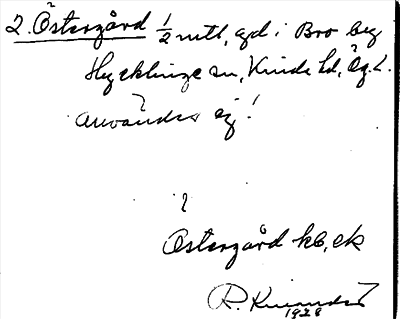 2. Östergård 1/2 mtl, gd i Bro by
Hycklinge sn, Kinda hd, Ög.l.
användes ej!
?
Östergård kb, ek
R.
1928